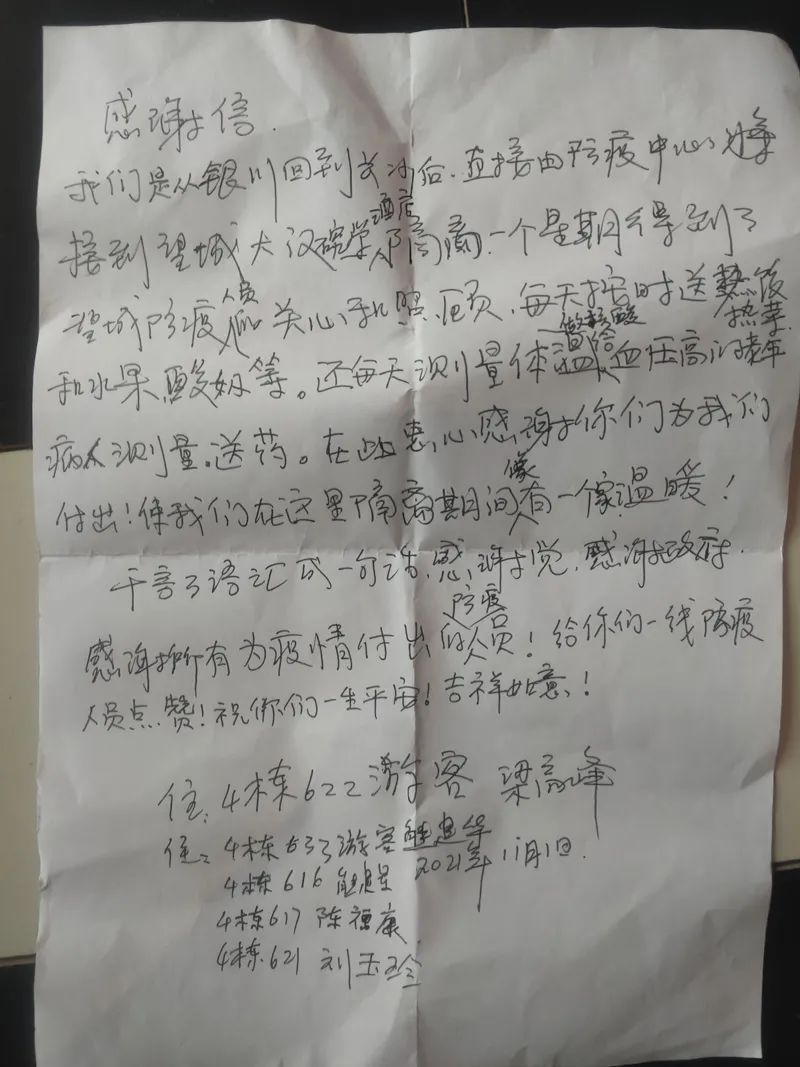 感谢信.
我们是从银川回到长沙后.直接由防疫中心的专车
接到望城大汉碧学酒店隔离.一个星期得到了
望城防疫人员的关心和照顾.每天按时送热饭热菜
和水果酸奶等。还每天测量体温做核酸给血压高的老年
病人测量.送药。在此衷心感谢你们为我们
付出!使我们在这里隔离期间像有一个家温暖!
千言万语汇成一句话.感谢党.感谢政府.
感谢所有为疫情付出的防疫人员!给你们一线防疫
人员点赞!祝你们一生平安!吉祥如意!
住:4栋622游客 梁高峰
住:4栋633游客
2021年11月1日.
4栋616
4栋617 陈福康
4栋621 刘玉玲